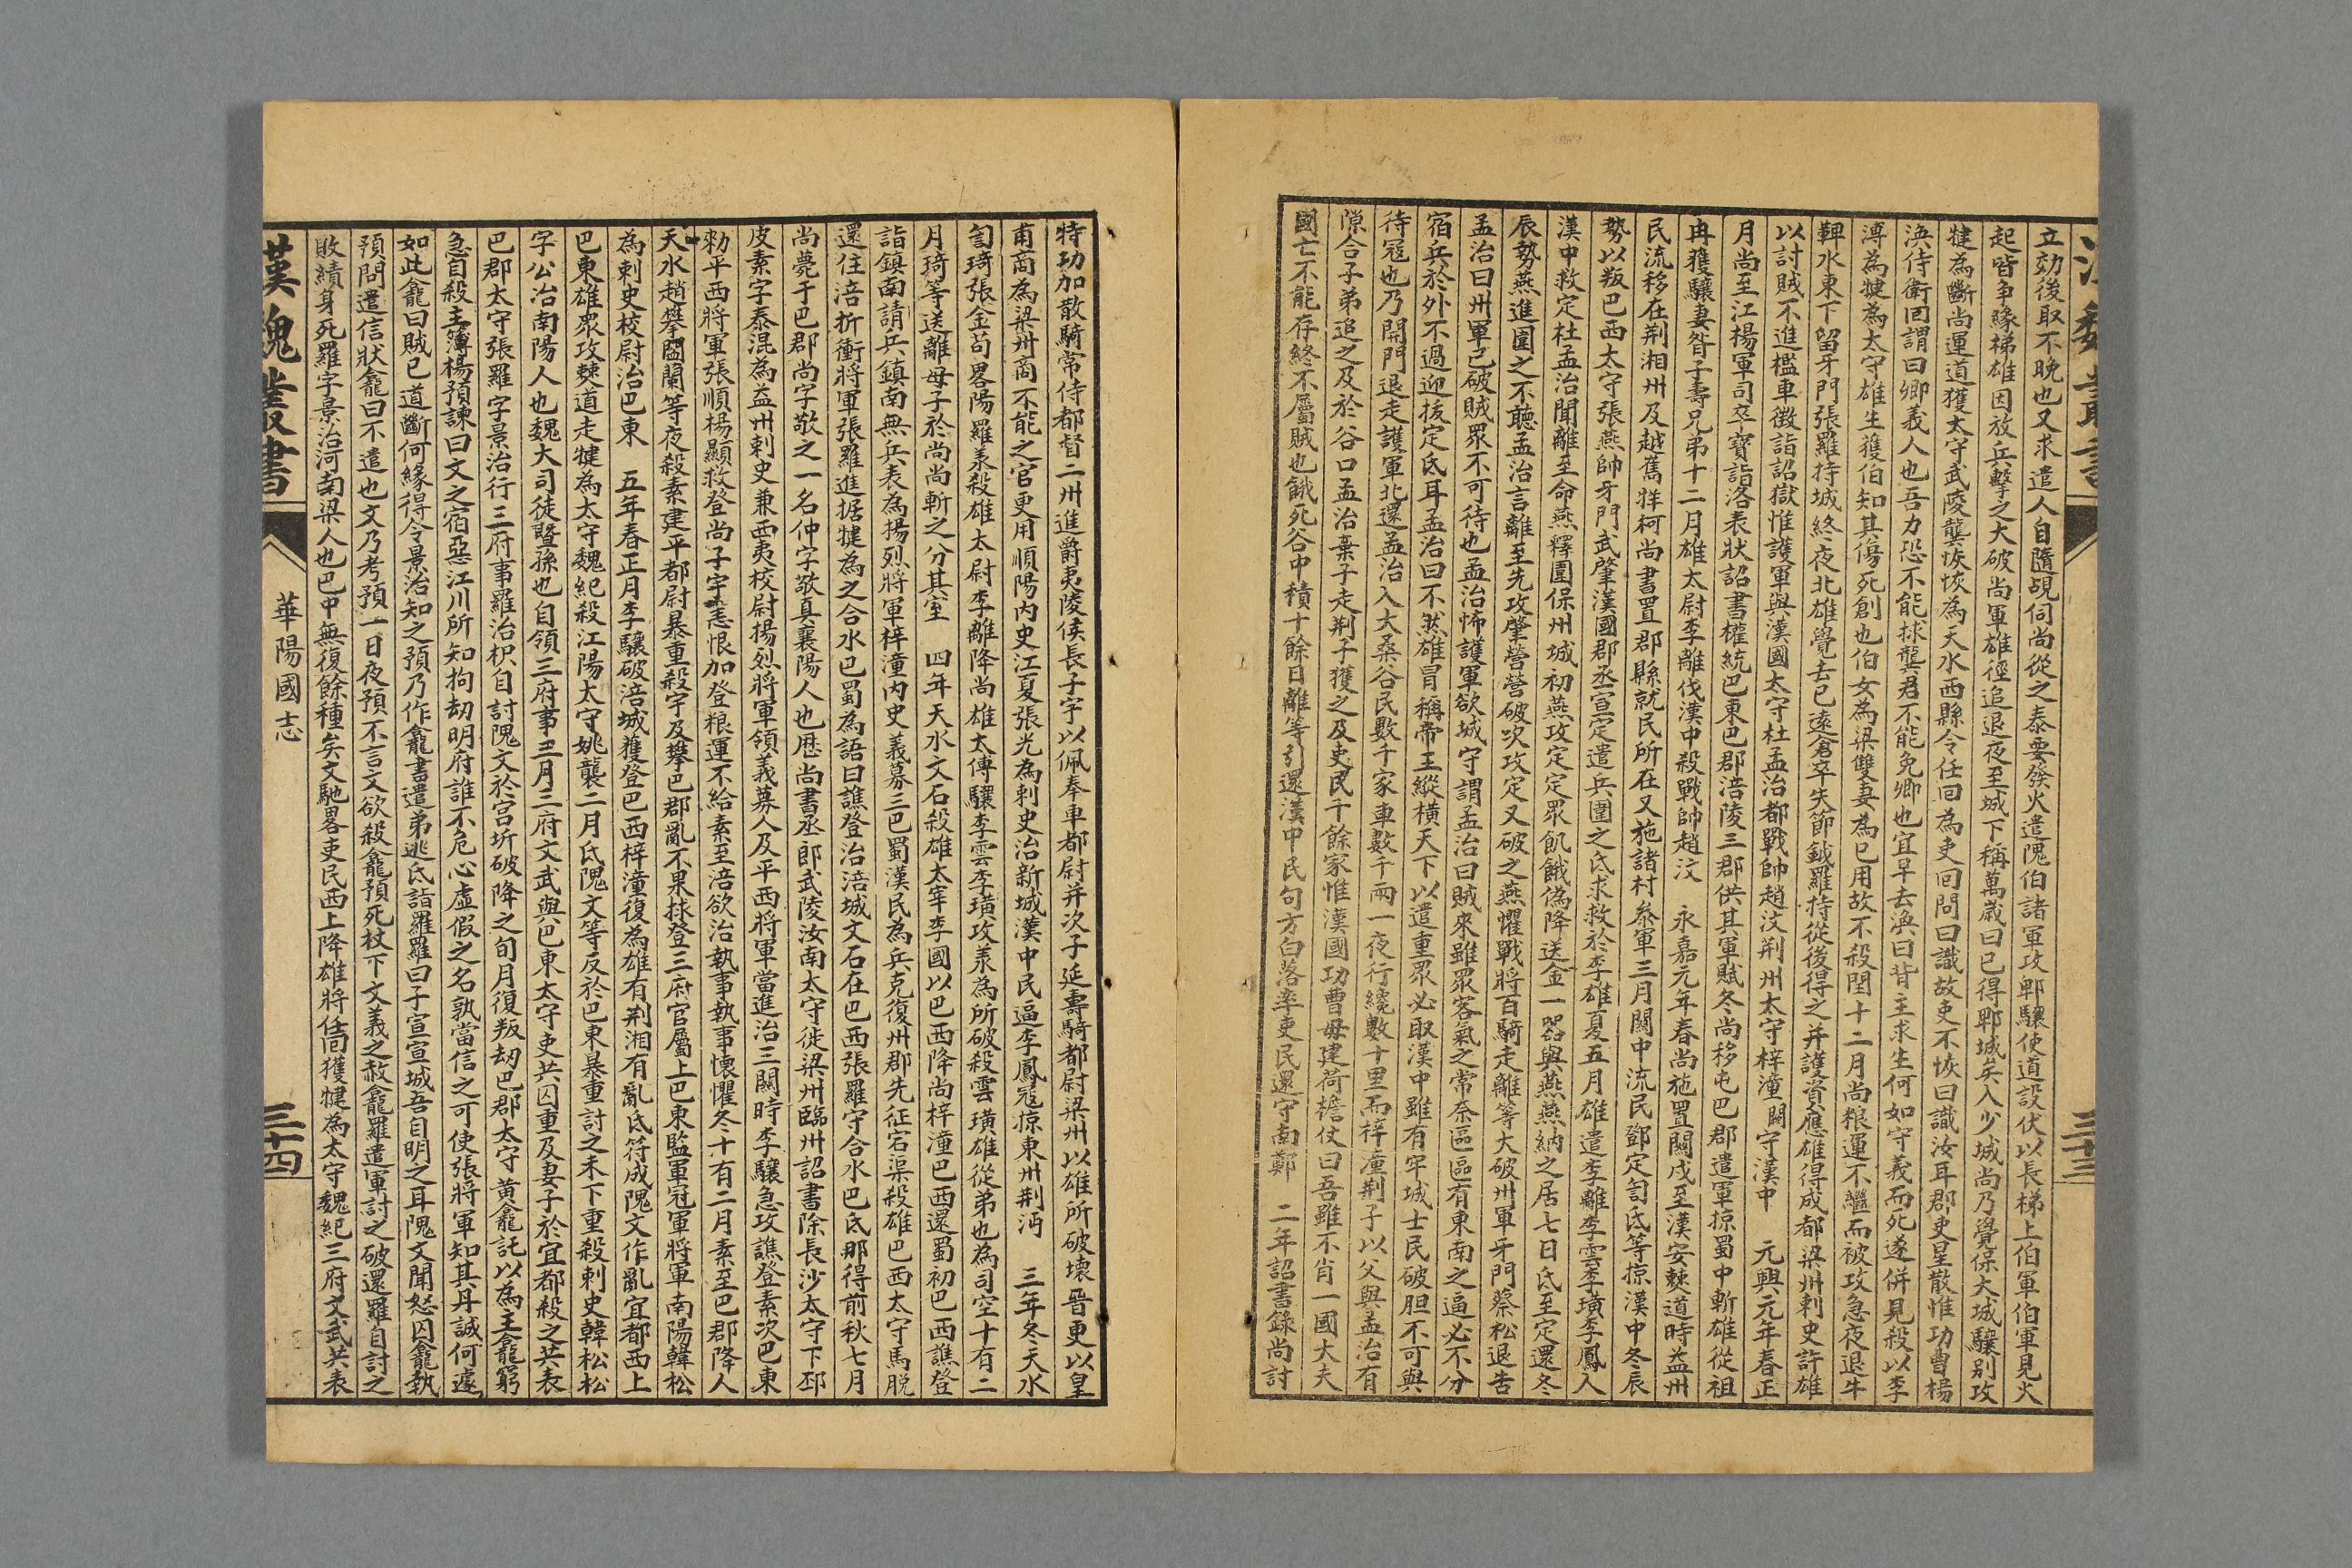 漢魏叢書
三十三
立効後取不晚也又求遣人自隨覘伺尚從之泰要發火遣隗伯諸軍攻郫驤使道設伏以長梯上伯軍伯軍見火
起皆争緣梯雄因放兵擊之大破尚軍雄徑追退夜至城下稱萬歲曰已得郫城矣入少城尚乃覺保大城驤别攻
犍為斷尚運道獲太守武陵龔恢恢為天水西縣令任回為吏回問曰識故吏不恢曰識汝耳郡吏星散惟功曹楊
渙侍衛回謂曰卿義人也吾力恐不能捄龔君不能免卿也宜早去渙曰背主求生何如守義而死遂併見殺以李
溥為犍為太守雄生獲伯知其傷死創也伯女為梁雙妻為已用故不殺閏十二月尚粮運不繼而被攻急夜退牛
鞞水東下留牙門張羅持城終夜北雄覺去已遠倉卒失節鉞羅持從後得之并護資應雄得成都梁州刺史許雄
以討賊不進檻車徵詣詔獄惟護軍與漢國太守杜孟治都戰帥趙汶荆州太守梓潼　闞守漢中　元興元年春正
月尚至江楊軍司卒寶詣洛表狀詔書權統巴東巴郡涪陵三郡供其軍賦冬尚移屯巴郡遣軍掠蜀中斬雄從祖
冉獲驤妻昝子壽兄弟十二月雄太尉李離伐漢中殺戰帥趙汶　永嘉元年春尚施置關戍至漢安僰道時益州
民流移在荆湘州及越嶲牂柯尚書置郡縣就民所在又施諸村叅軍三月關中流民鄧定訇氐等掠漢中冬辰
勢以叛巴西太守張燕帥牙門武肇漢國郡丞宣定遣兵圍之氐求救於李雄夏五月雄遣李離李雲李璜李鳳入
漢中救定杜孟治聞離至命燕釋圍保州城初燕攻定定眾飢餓偽降送金一器與燕燕納之居七日氐至定還冬
辰勢燕進圍之不聽孟治言離至先攻肇營營破次攻定又破之燕懼戰將百騎走離等大破州軍牙門蔡松退告
孟治曰州軍已破賊眾不可待也孟治怖護軍欲城守謂孟治曰賊來雖眾客氣之常奈區區有東南之逼必不分
宿兵於外不過迎拔定氐耳孟治曰不然雄冒稱帝王縱横天下以遣重眾必取漢中雖有牢城士民破胆不可與
待寇也乃開門退走護軍北還孟治入大桑谷民數千家車數千兩一夜行纔數十里而梓潼荆子以父與孟治有
隙合子弟追之及於谷口孟治棄子走荆子獲之及吏民千餘家惟漢國功曹毋建荷檐仗曰吾雖不肖一國大夫
國亡不能存終不屬賊也餓死谷中積十餘日離等引還漢中民句方白落率吏民還守南鄭　二年詔書錄尚討
特功加散騎常侍都督二州進爵夷陵侯長子宇以佩奉車都尉并次子延壽騎都尉梁州以雄所破壞晉更以皇
甫商為梁州商不能之官更用順陽内史江夏張光為刺史治新城漢中民逼李鳳寇掠東州荆沔　三年冬天水
訇琦張金苟畧陽羅羕殺雄太尉李離降尚雄太傅驤李雲李璜攻羕為所破殺雲璜雄從弟也為司空十有二
月琦等送離母子於尚尚斬之分其室　四年天水文石殺雄太宰李國以巴西降尚梓潼巴西還蜀初巴西譙登
詣鎮南請兵鎮南無兵表為揚烈將軍梓潼内史義募三巴蜀漢民為兵克復州郡先征宕渠殺雄巴西太守馬脱
還住涪折衝將軍張羅進据犍為之合水巴蜀為語曰譙登治涪城文石在巴西張羅守合水巴氐那得前秋七月
尚薨于巴郡尚字敬之一名仲字敬真襄陽人也歷尚書丞郎武陵汝南太守徙梁州臨州詔書除長沙太守下邳
皮素字泰混為益州刺史兼西夷校尉揚烈將軍領義募人及平西將軍當進治三關時李驤急攻譙登素次巴東
勑平西將軍張順楊顯救登尚子宇恚恨加登粮運不給素至涪欲治執事執事懷懼冬十有二月素至巴郡降人
天水趙攀閻蘭等夜殺素建平都尉暴重殺宇及攀巴郡亂不果捄登三府官屬上巴東監軍冠軍將軍南陽韓松
為刺史校尉治巴東　五年春正月李驤破涪城獲登巴西梓潼復為雄有荆湘有亂氐符成隗文作亂宜都西上
巴東雄眾攻僰道走犍為太守魏紀殺江陽太守姚襲二月氐隗文等反於巴東暴重討之未下重殺刺史韓松松
字公治南陽人也魏大司徒暨孫也自領三府事三月三府文武與巴東太守吏共囚重及妻子於宜都殺之共表
巴郡太守張羅字景治行三府事羅治枳自討隗文於宫圻破降之旬月復叛刧巴郡太守黄龕託以為主龕窮
急自殺主簿楊預諫曰文之宿惡江川所知拘刧明府誰不危心虛假之名孰當信之可使張將軍知其丹誠何遽
如此龕曰賊已道斷何緣得令景治知之預乃作龕書遣弟逃氐詣羅羅曰子宣宣城吾自明之耳隗文聞怒囚龕執
預問遣信狀龕曰不遣也文乃考預一日夜預不言文欲殺龕預死杖下文義之赦龕羅遣軍討之破還羅自討之
敗績身死羅字景治河南梁人也巴中無復餘種矣文馳畧吏民西上降雄將任囘獲犍為太守魏紀三府文武共表
漢魏叢書
華陽國志
三十四